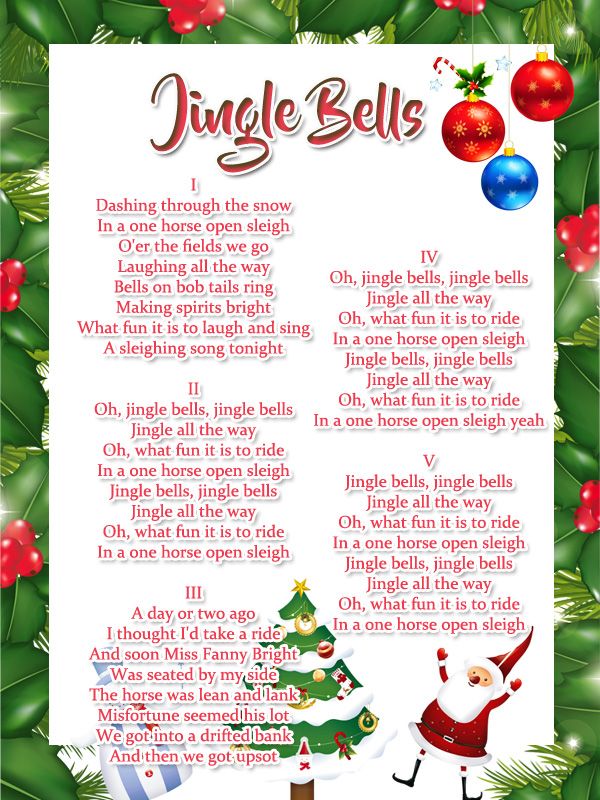 Jingle Bells
I
Dashing through the snow
In a one horse open sleigh
O'er the fields we go
Laughing all the way
Bells on bob tails ring
Making spirits bright
What fun it is to laugh and sing
A sleighing song tonight
II
Oh, jingle bells, jingle bells
Jingle all the way
Oh, what fun it is to ride
In a one horse open sleigh
Jingle bells, jingle bells
Jingle all the way
Oh, what fun it is to ride
In a one horse open sleigh
III
A day or two ago
I thought I'd take a ride
And soon Miss Fanny Bright
Was seated by my side
The horse was lean and lank
Misfortune seemed his lot
We got into a drifted bank
And then we got upsot
IV
Oh, jingle bells, jingle bells
Jingle all the way
Oh, what fun it is to ride
In a one horse open sleigh
Jingle bells, jingle bells
Jingle all the way
Oh, what fun it is to ride
In a one horse open sleigh yeah
V
Jingle bells, jingle bells
Jingle all the way
Oh, what fun it is to ride
In a one horse open sleigh
Jingle bells, jingle bells
Jingle all the way
Oh, what fun it is to ride
In a one horse open sleigh